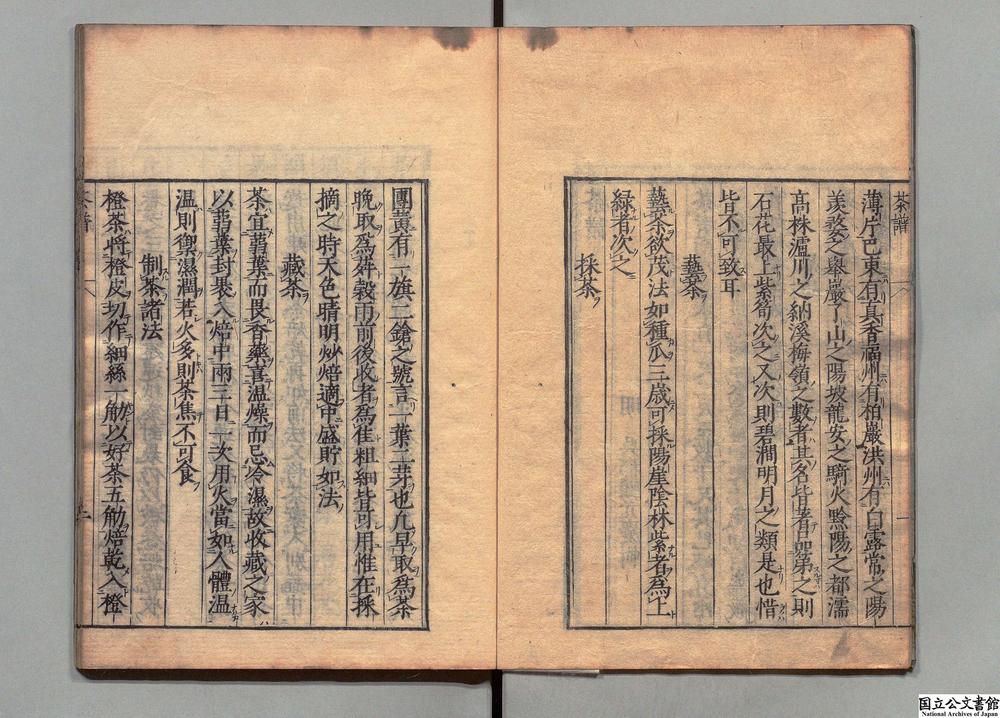 茶譜 一
薄片巴東有真香福州有柏巖洪州有白露常之陽
羨婺之舉巖丫山之陽坡龍安之騎火黔陽之都濡
高株瀘川之納溪梅嶺之數者其名皆著品第之則
石花最上紫筍次之又次則碧澗明月之類是也惜
皆不可致耳
藝茶
藝茶欲茂法如種瓜三歲可採陽崖陰林紫者為上
綠者次之
採茶
團黃有一旗二鎗之號言一葉二芽也凡早取為茶
晚取為荈穀雨前後收者為佳粗細皆可用惟在採
摘之時天色晴明炒焙適中盛貯如法
藏茶
茶宜蒻葉而畏香藥喜溫燥而忌冷濕故收藏之家
以蒻葉封裹入焙中兩三日一次用火當如人體溫
溫則禦濕潤若火多則茶焦不可食
制茶諸法
橙茶將橙皮切作細絲一觔以好茶五觔焙乾入橙
国立公文書館
National Archives of Japan